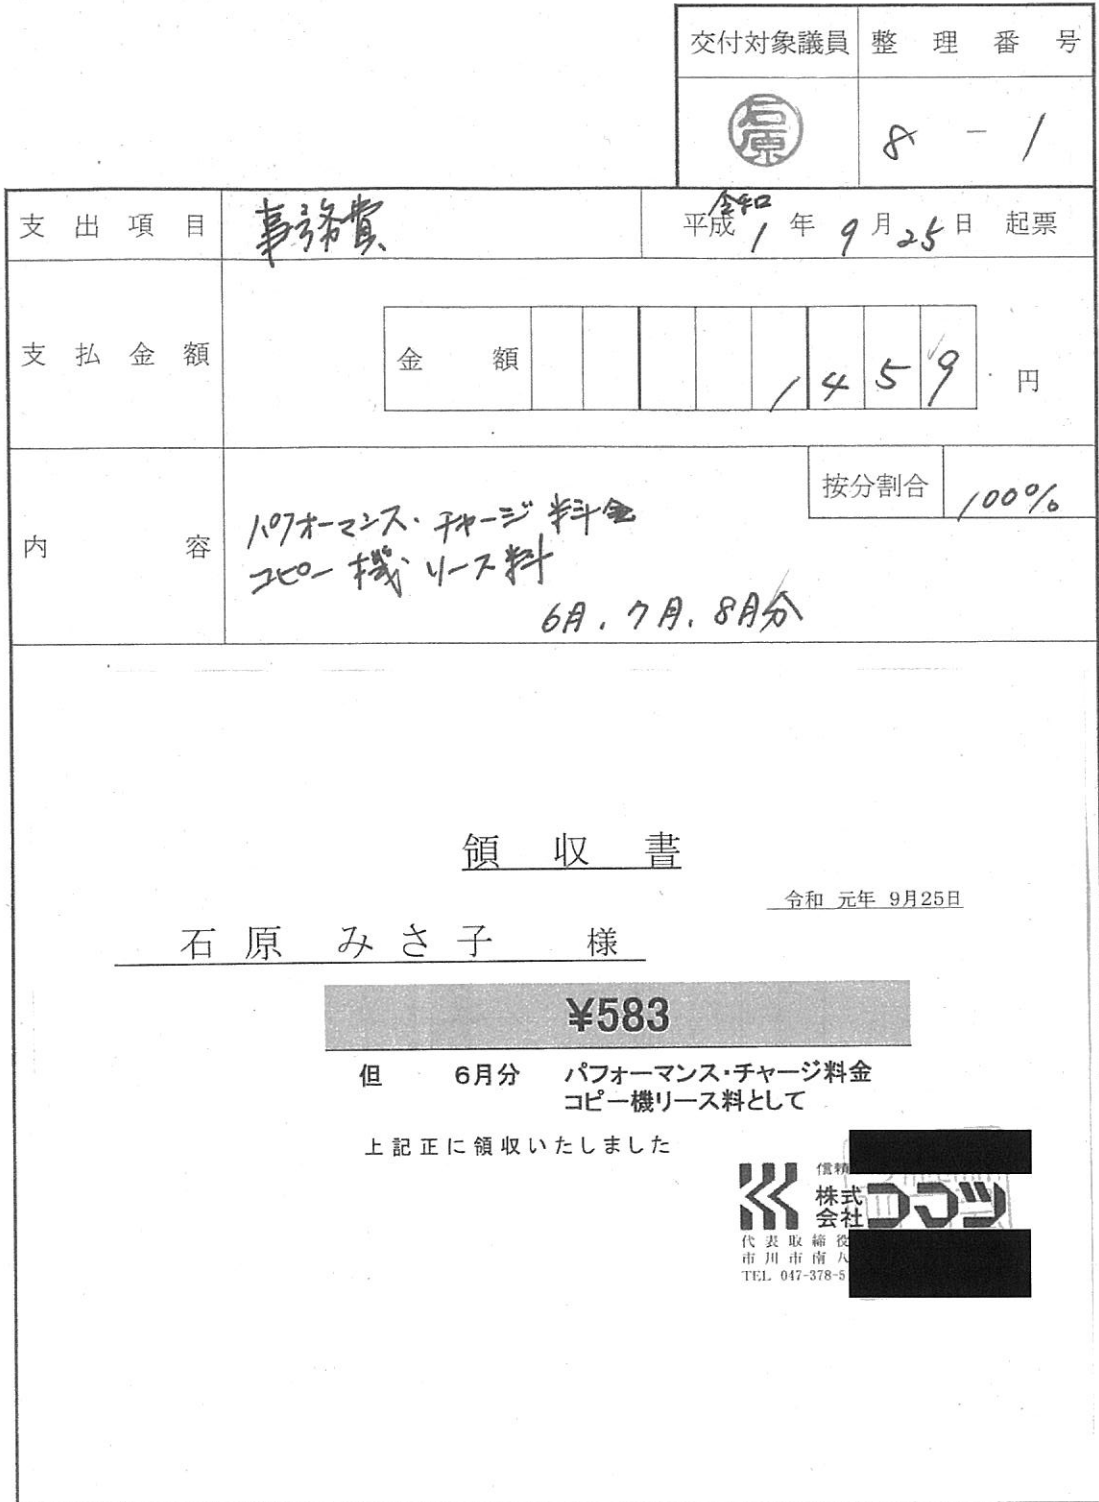 交付対象議員 整理番号
石原 8 - 1
支出項目 事務費 平成 令和 1年 9月25日 起票
支払金額 金額 1459 円
按分割合 100%
内容 パフォーマンス・チャージ料金
コピー機リース料
6月、7月、8月分
領収書
令和 元年 9月25日
石原 みさ子 様
¥583
但 6月分 パフォーマンス・チャージ料金
コピー機リース料として
上記正に領収いたしました
信頼
株式会社 コマツ
代表取締役
市川市南八
TEL 047-378-5